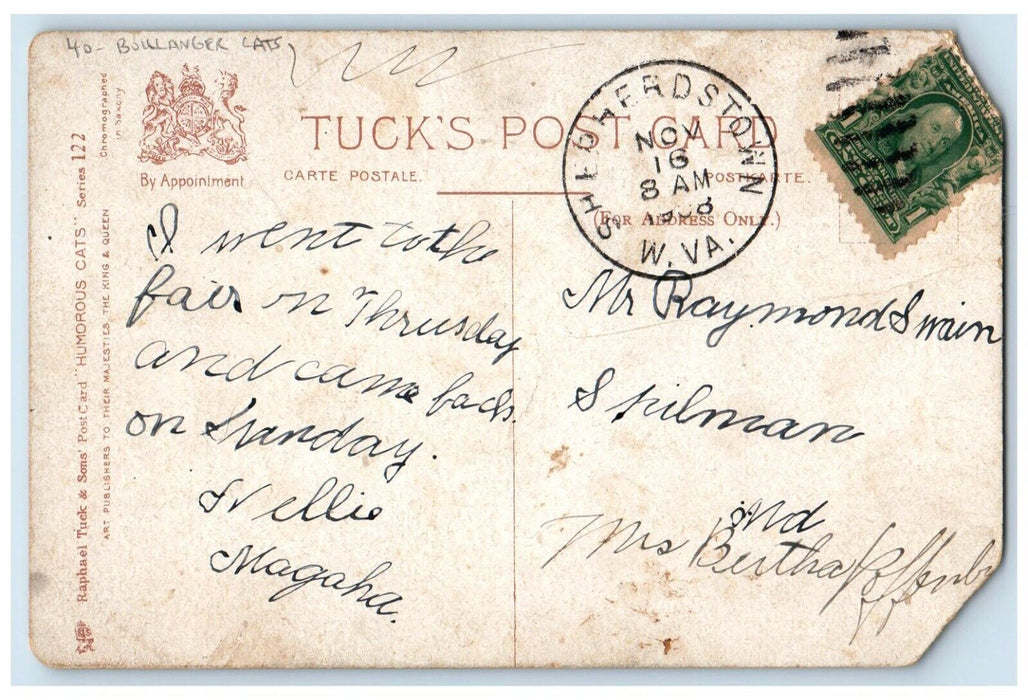 40- BOULANGER CATS
TUCK'S POST CARD
CARTE POSTALE.
POSTKARTE.
(FOR ADDRESS ONLY.)
By Appointment
Chromographed
in Saxony
Raphael Tuck & Sons' Post Card "HUMOROUS CATS" Series 122
ART PUBLISHERS TO THEIR MAJESTIES THE KING & QUEEN
SHEPHERDSTOWN
NOV
16
8 AM
1908
W. VA.
I went to the
fair on Thrusday
and came back
on Sunday.
Nellie
Magaha.
Mr Raymond Swain
Spilman
Md
Miss Bertha